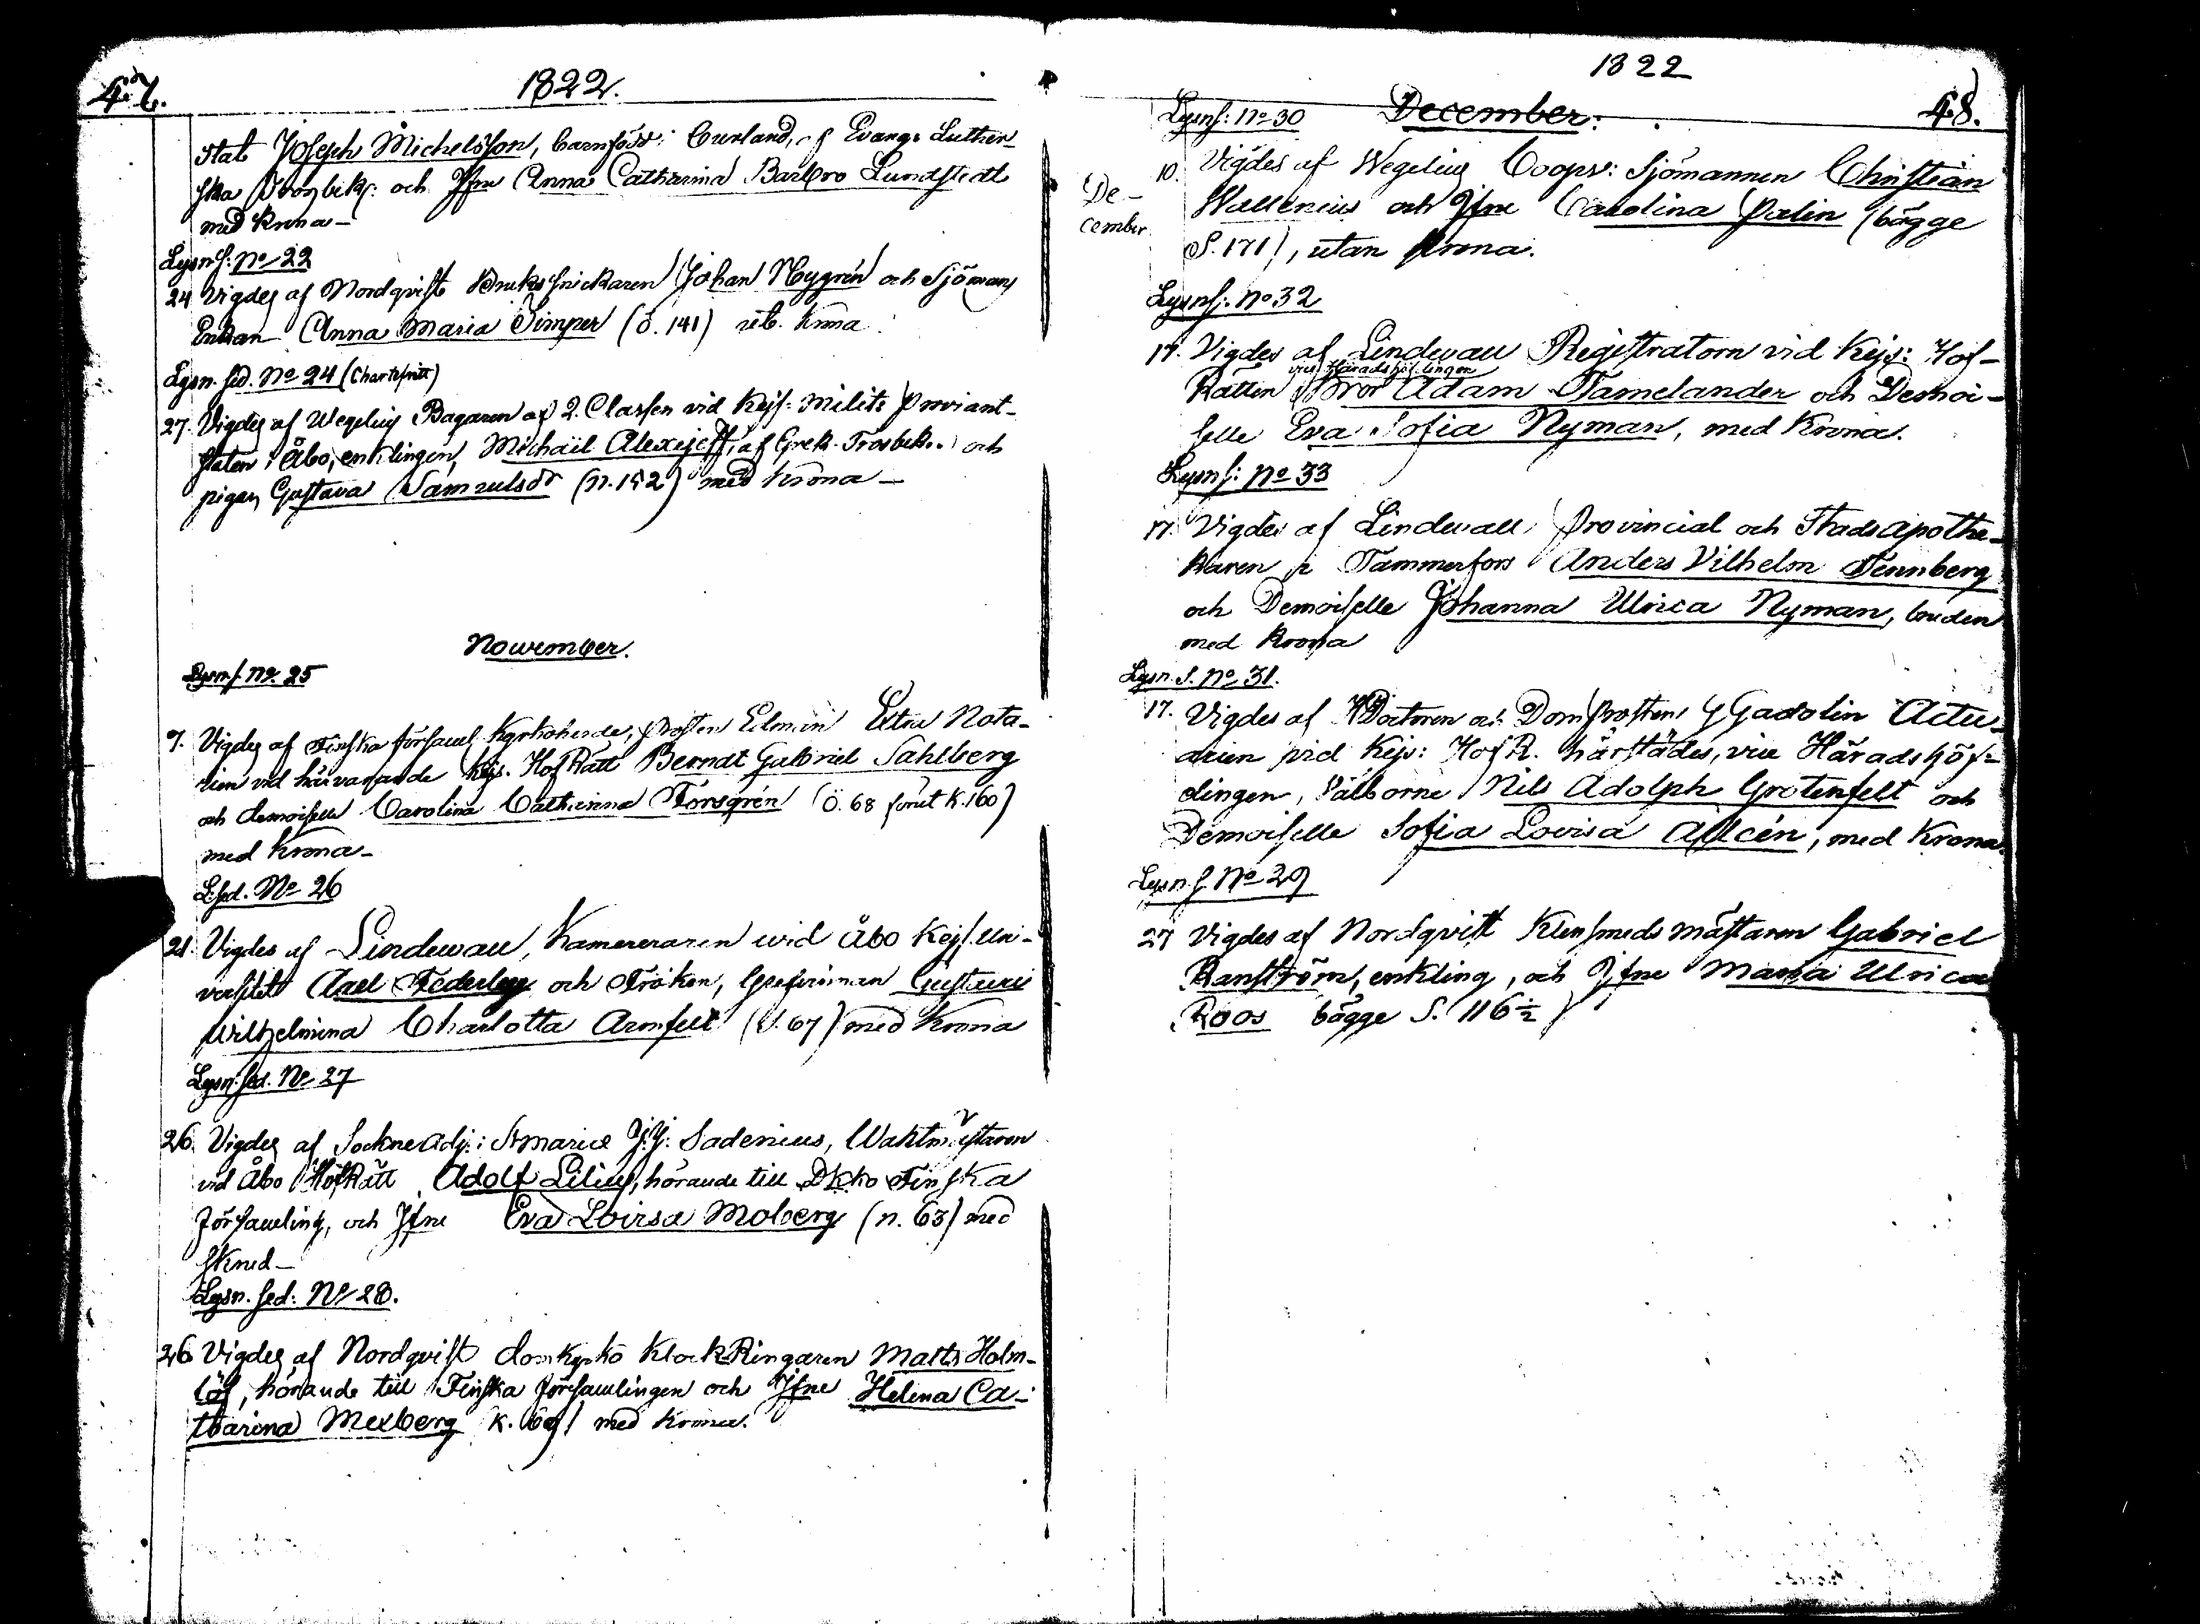 47.
1822.
Stat Joseph Michelsson, barnföd i Curland, af Evang. Luther-
ska Trosbek: och Jfru Anna Catharina Barbro Lundstedt
med Krona -
Lysn.s: No 22
24 Vigdes af Nordqvist Bruks snickaren Johan Nygrén och Sjömans
Enkan Anna Maria Timper (Ö. 141) ut. Krona
Lysn. sed. No 24 (Chartefritt)
27. Vigdes af Wegelius Bagaren af 2. Classen vid Kejs: Milit: Proviant-
staten i Åbo, enklingen, Michaël Alexejeff, af Grek. Trosbek.. och
pigan Gustava Samuelsdr (n. 152) med Krona -
November.
Lysn.s No. 25
7. Vigdes af Finska församl. Kyrkoherde, Prosten Edman Extra Nota-
rien vid härvarande Kejs. Hof Rätt Berndt Gabriel Sahlberg
och demoiselle Carolina Catharina Forsgrén (Ö. 68 förut K. 160)
med Krona -
L.sed. No 26
21. Vigdes af Lindewall, Kamereraren wid Åbo Kejs. Uni-
versitet Axel Federley och Fröken, Grefvinnan Gustava
Wilhelmina Charlotta Armfelt (S. 67) med Krona
Lysn. sed. No 27
26. Vigdes af Sockne Adj: i St Mariæ J.J: Sadenius, Waktmästaren
vid Åbo HofRätt Adolf Lilius, hörande till Dkko Finska
församling, och Jfru Eva Lovisa Moberg (n. 63) med
skrud -
Lysn. sed: No 28.
26 Vigdes af Nordqvist domkyrko KlockRingaren Matts Holm-
löf, hörande till Finska församlingen och Jfru Helena Ca-
tharina Mexberg K. 69) med Krona.
1822
48.
Lysn.s: No 30 December:
De-
cember
10. Vigdes af Wegelius Coopv: Sjömannen Christian
Wallenius och Jfru Carolina Palin (bägge
S. 171), utan Krona.
Lysn.s: No 32
17. Vigdes af Lindewall Registratorn vid Kejs: Hof-
vice Häradshöfdingen
Rätten Bror Adam Tamelander och Demoi-
selle Eva Sofia Nyman, med Krona.
Lysn.s: No 33
17. Vigdes af Lindewall Provincial och Stadsapothe-
karen i Tammerfors Anders Vilhelm Tennberg
och Demoiselle Johanna Ulrica Nyman, bruden
med Krona
Lysn. S. No 31.
17. Vigdes af Doctoren och Domprosten G Gadolin Actu-
arien vid Kejs: Hof R. härstädes, vice Häradshöf-
dingen, Välborne Nils Adolph Grotenfelt och
Demoiselle Sofia Lovisa Allcén, med Krona.
Lysn. S No 29
27 Vigdes af Nordqvist Klensmedsmästaren Gabriel
Ranström, enkling, och Jfru Maria Ulrica
Roos bägge S. 116½)